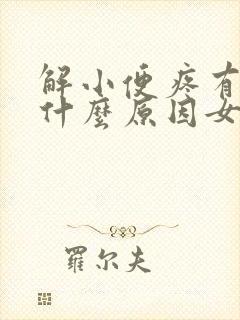 解小便疼有
什麼原因女
羅尔夫